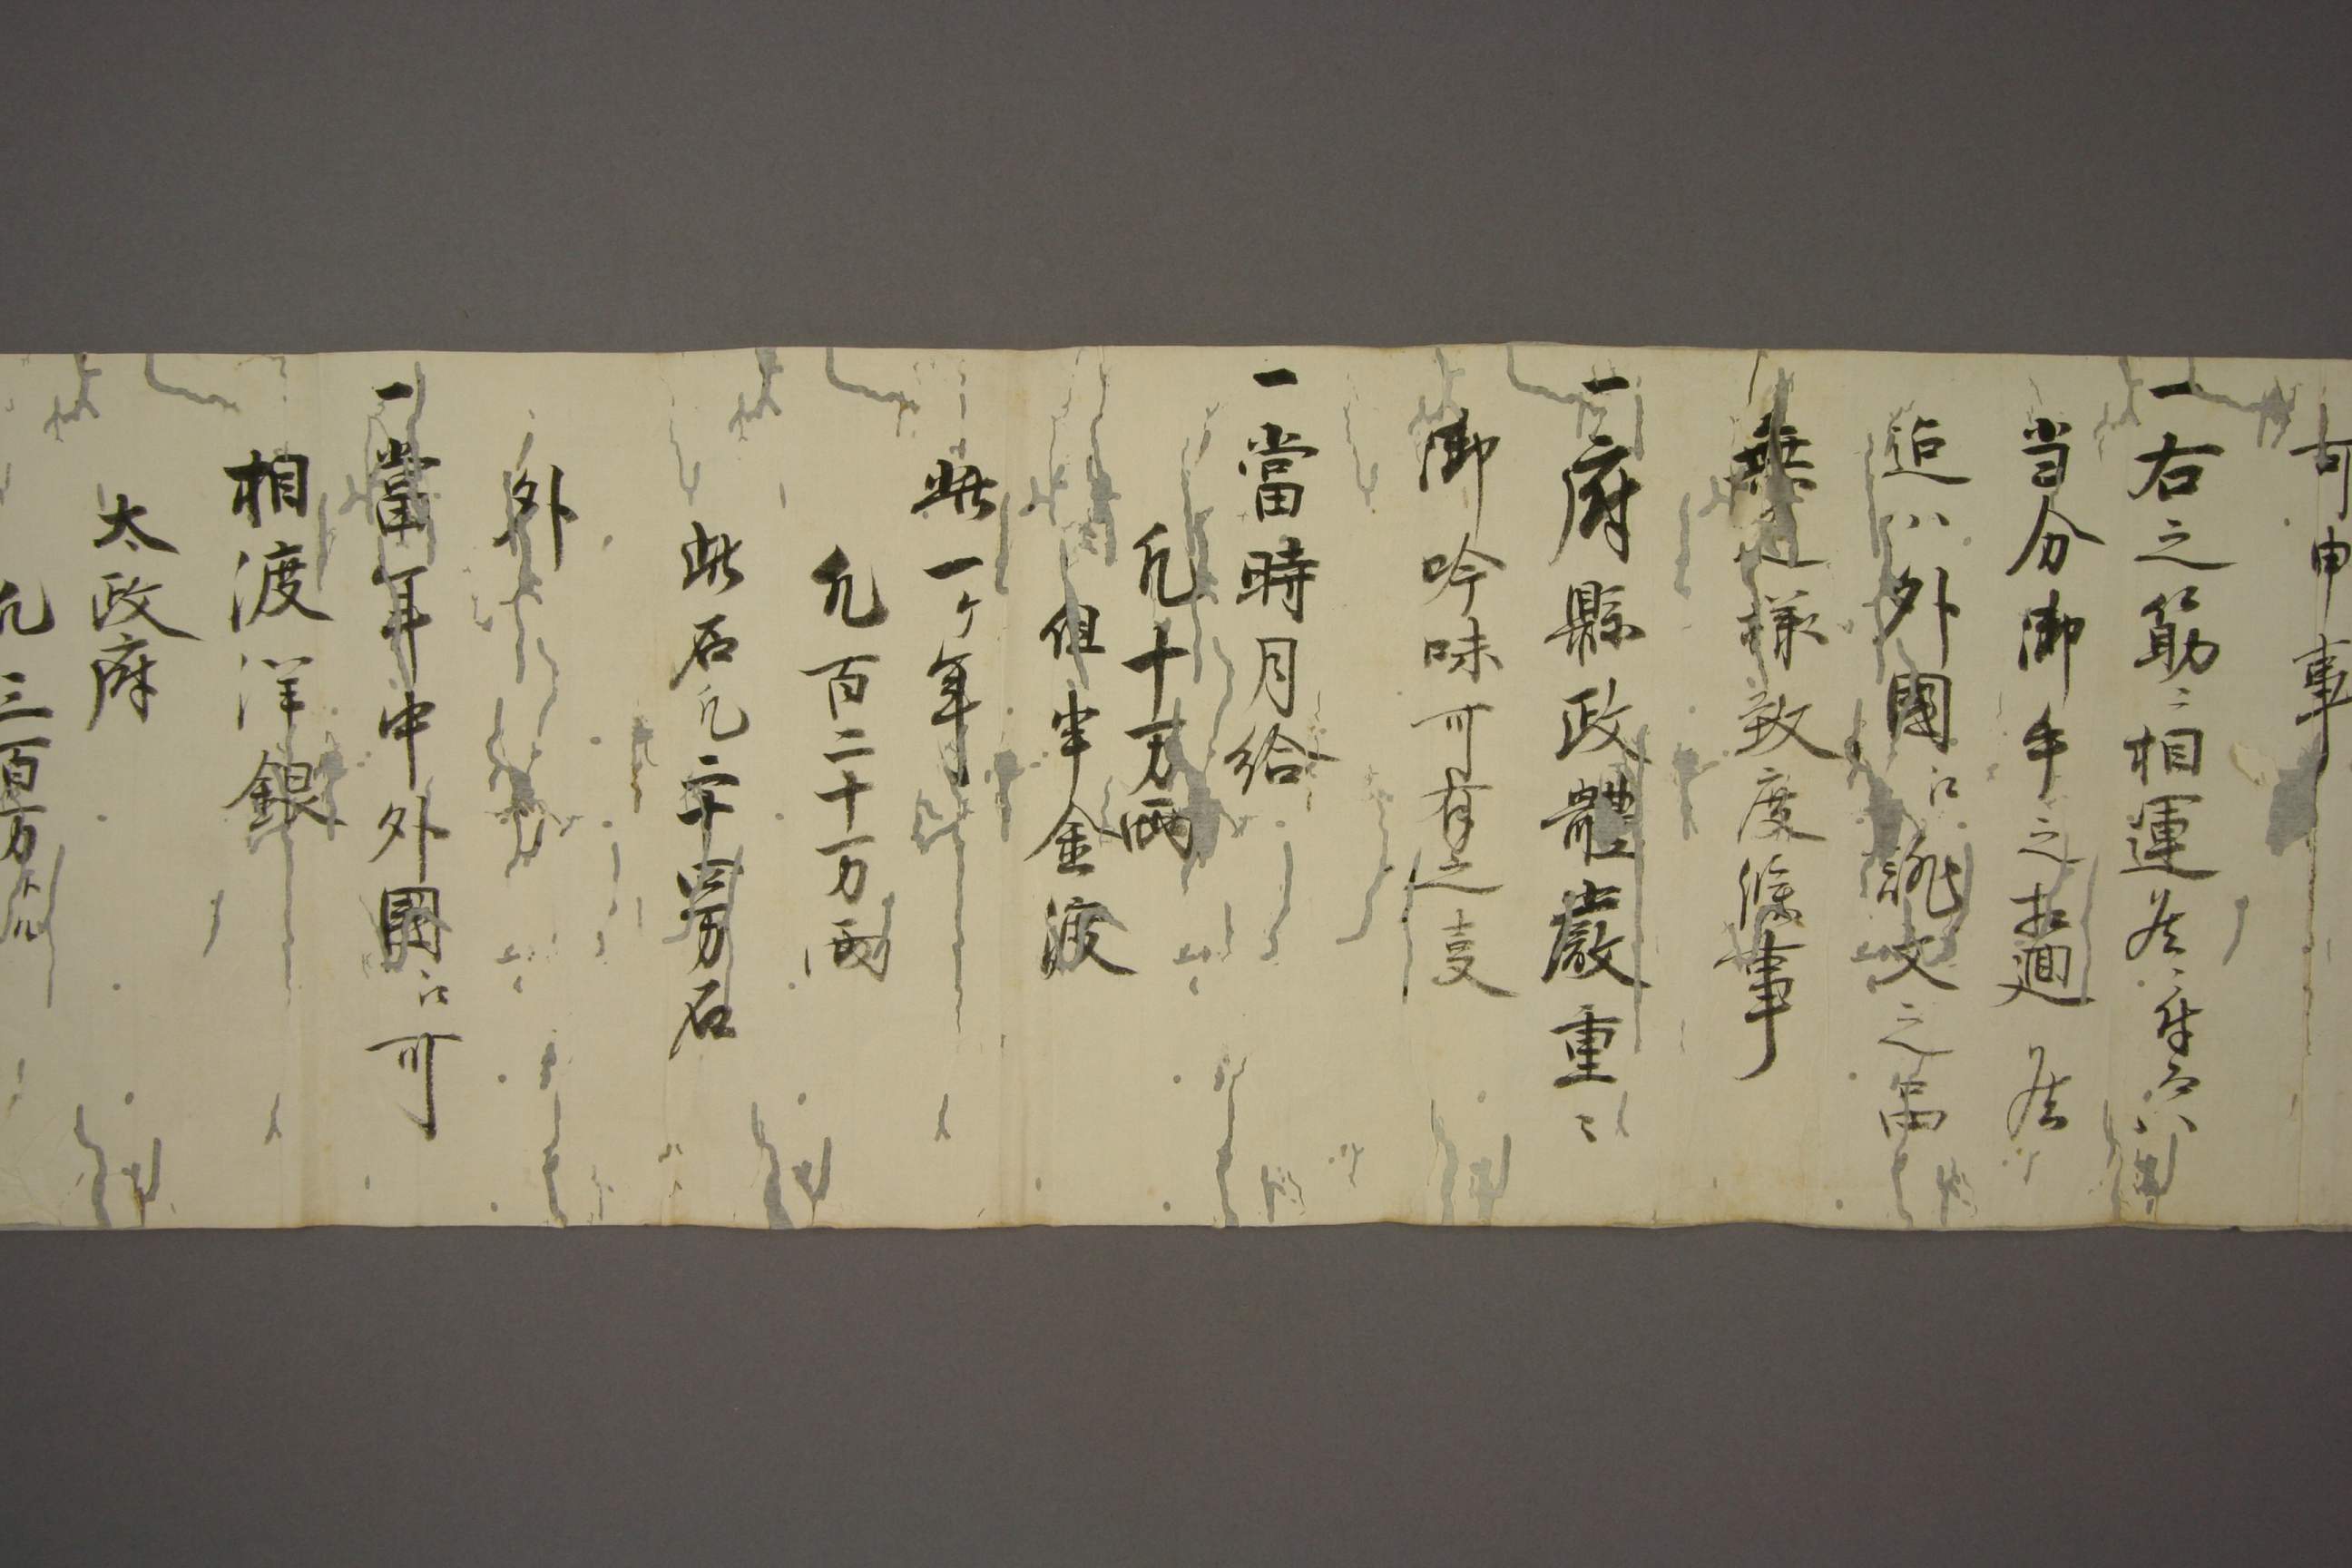 可申事
一右之筋ニ相運候ニ付而ハ
当分御手之相廻候
迄ハ外國江誂文之品
無之様致度候事
一府縣政體嚴重ニ
御吟味可有之事
一當時月給
凡十万両
但半金渡
此一ヶ年
凡百二十万両
此石凡二十四万石
外
一當年中外國江可
相渡洋銀
太政府
凡三百万